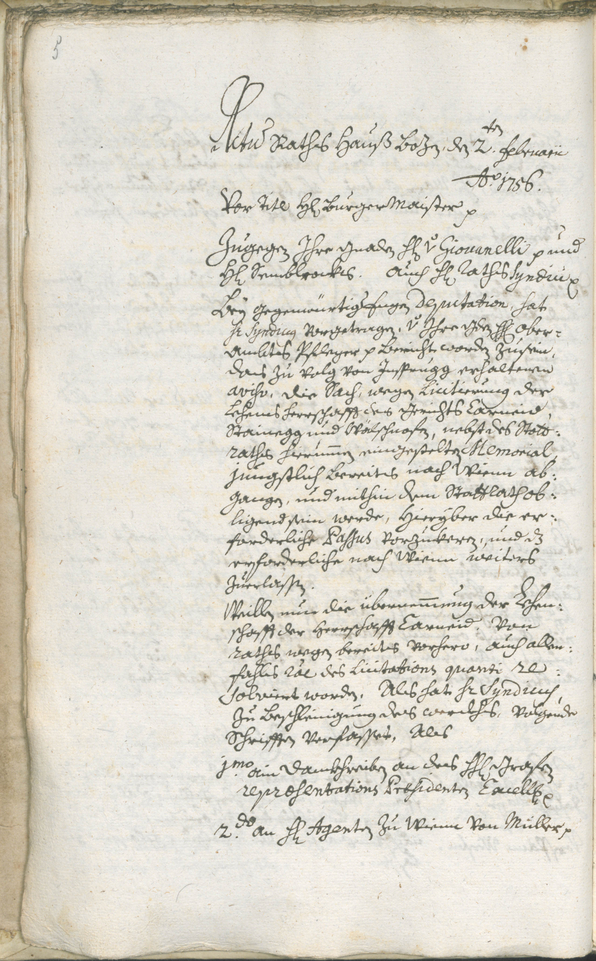 5
Actu Rathshauß Bozen, den 2.ten Februarii
Ao. 1756.
Vor Titl H: Burgermaister p
Zugegen Ihre Gnaden H: v Giovanelli p und
H: auch H: Raths Syndici p
Bey gegenwärtig Engen Deputation hat
H: Syndicus vorgetragen, Ihre H: ober-
ambtes Pfleger p berichtet worden zu sein,
dass zu volg von Insprugg erhaltenen
aviso, die Sach, wegen Licitierung der
Lehensherrschafft des Gerichts Carneid,
Stainegg und Wälschnofen, nebst des Statt-
raths hierinnen eingestelten Memorial,
jüngstlich bereits nach Wienn ab-
gangen, und mithin dem Stattrath ob-
ligend sein werde, hieryber die er-
forderliche Passus vorzukeren, und dz
erforderliche nach Wienn weiters
zuerlassen.
Weillen nun die übernemmung der Lehen-
schafft der Herrschafft Carneid von
raths wegen bereits vorhero, auch allen-
fahls des Licitations quanti re-
solviert worden, Als hat H: Syndicus,
zu beschleinigung des werckhs, volgende
Schrifften verfasset, Als
1mo ain Dankschreiben an des H: Grafen
repræsentations Præsidenten Excell: p
2do an H: Agenten zu Wienn von Müller p